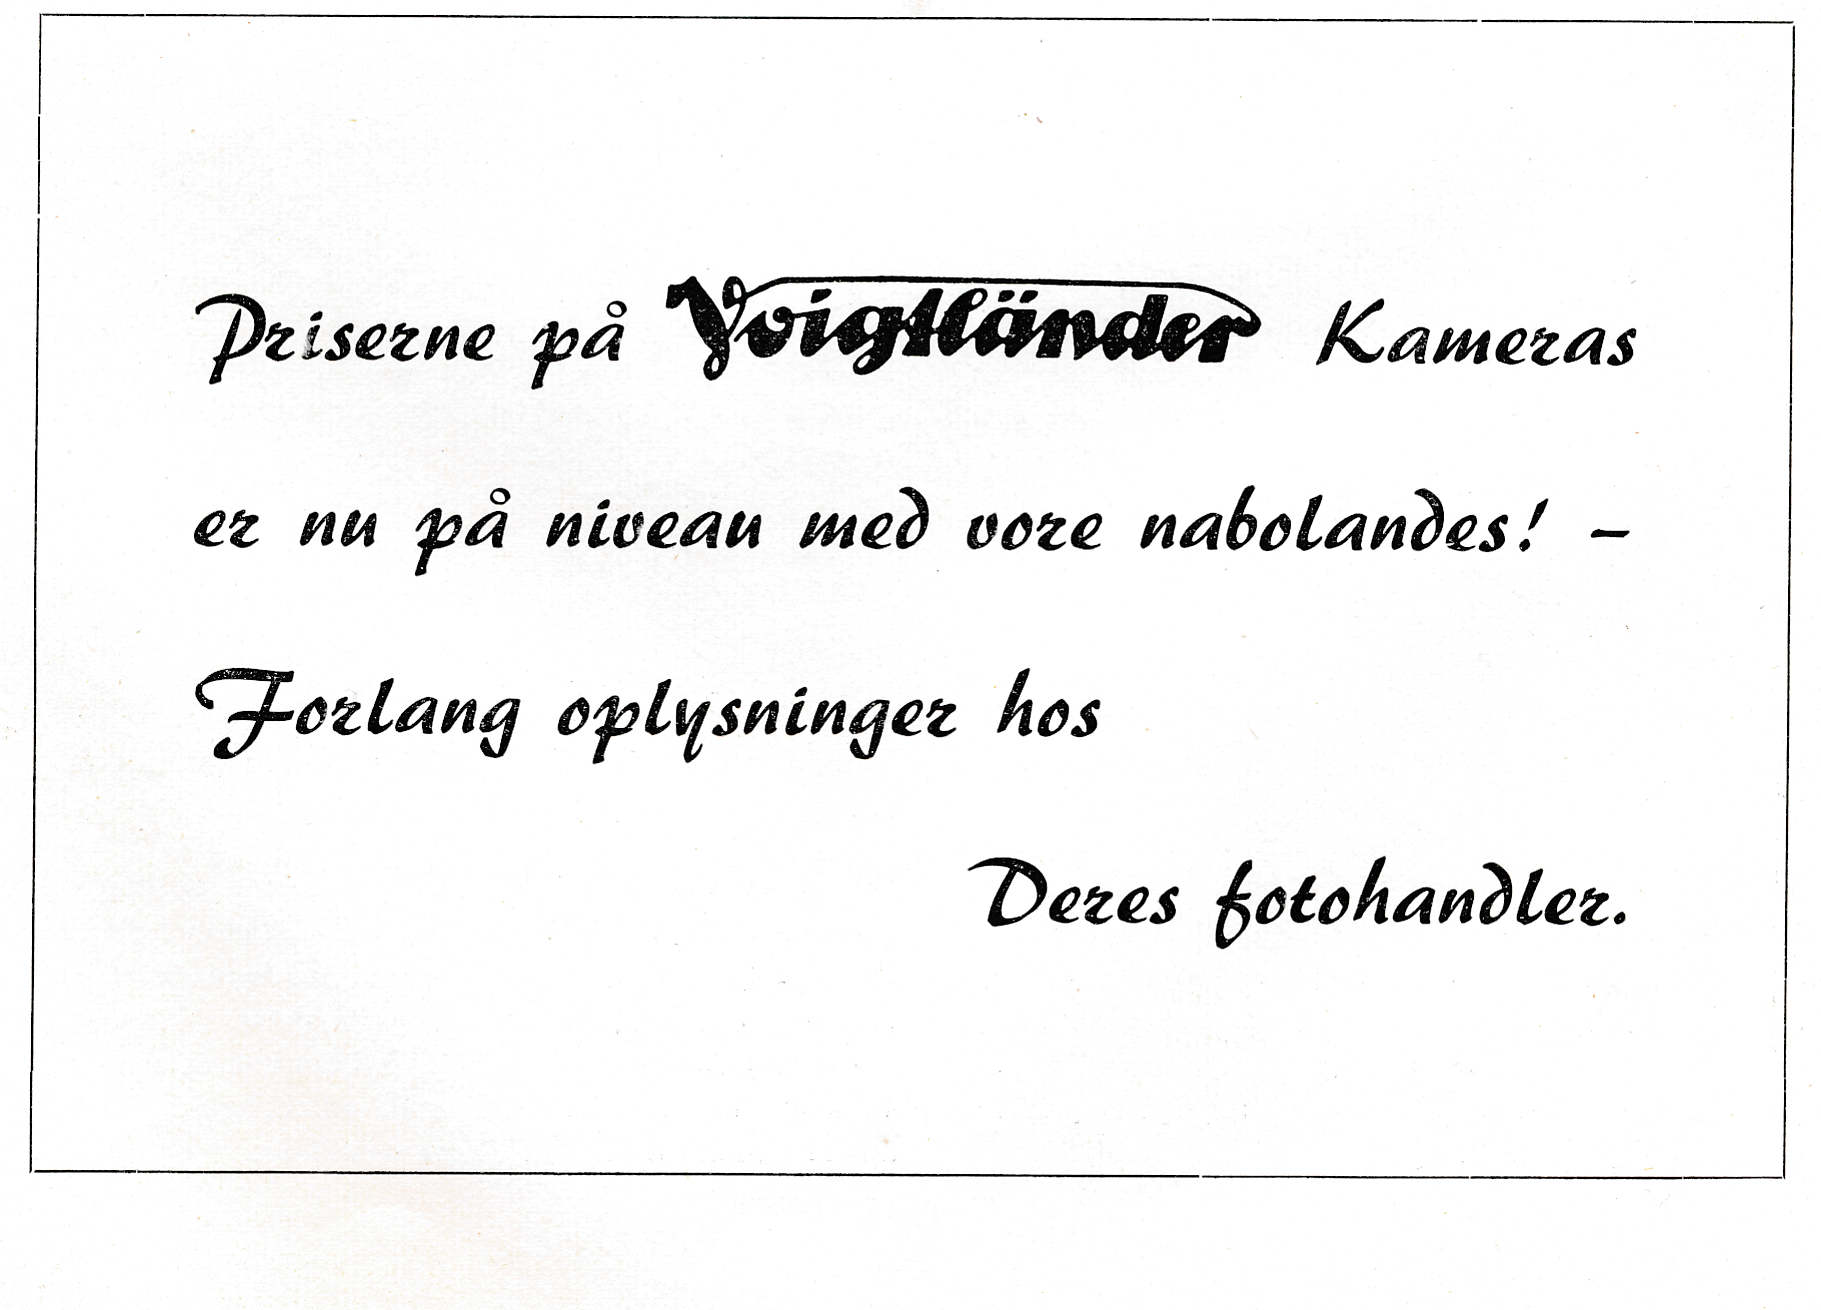 Priserne på Voigtländer Kameras
er nu på niveau med vore nabolandes! –
Forlang oplysninger hos
Deres fotohandler.